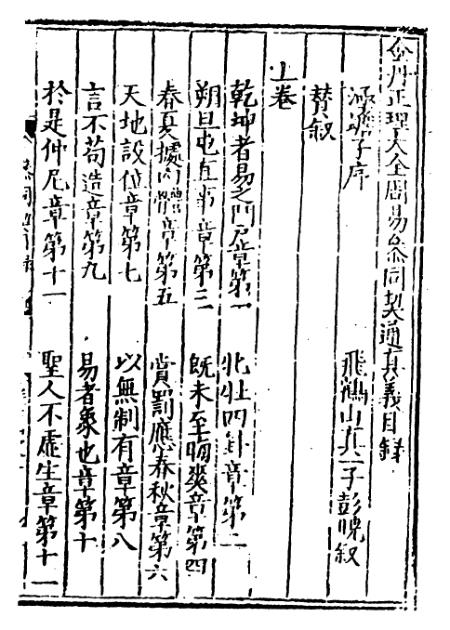 金丹正理大全周易叅同契通真義目錄
涵蟾子序　飛鶴山真一子彭曉叙
贊叙
上卷
乾坤者易之門戶章第一　牝牡四卦章第二
朔旦屯直事章第三　既未至晦爽章第四
春夏據內體章第五　賞罰應春秋章第六
天地設位章第七　以無制有章第八
言不苟造章第九　易者象也章第十
於是仲尼章第十一　聖人不虛生章第十二